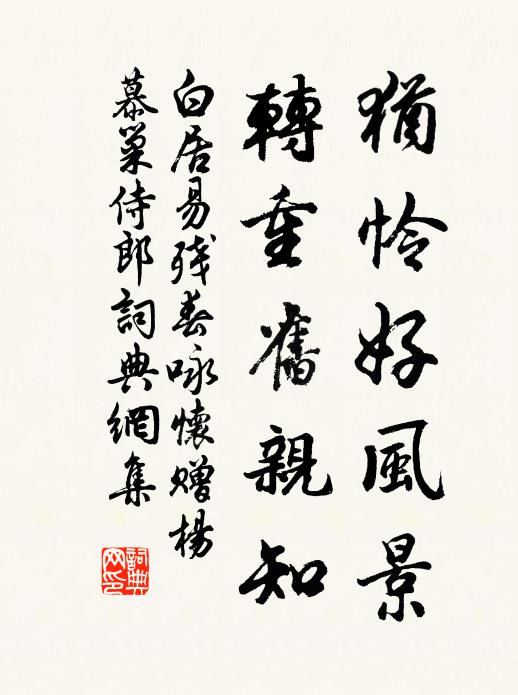 猶怜好風景
轉重舊親知
白居易殘春咏懷贈楊
慕巢侍郎詞典網集
詞典
网印